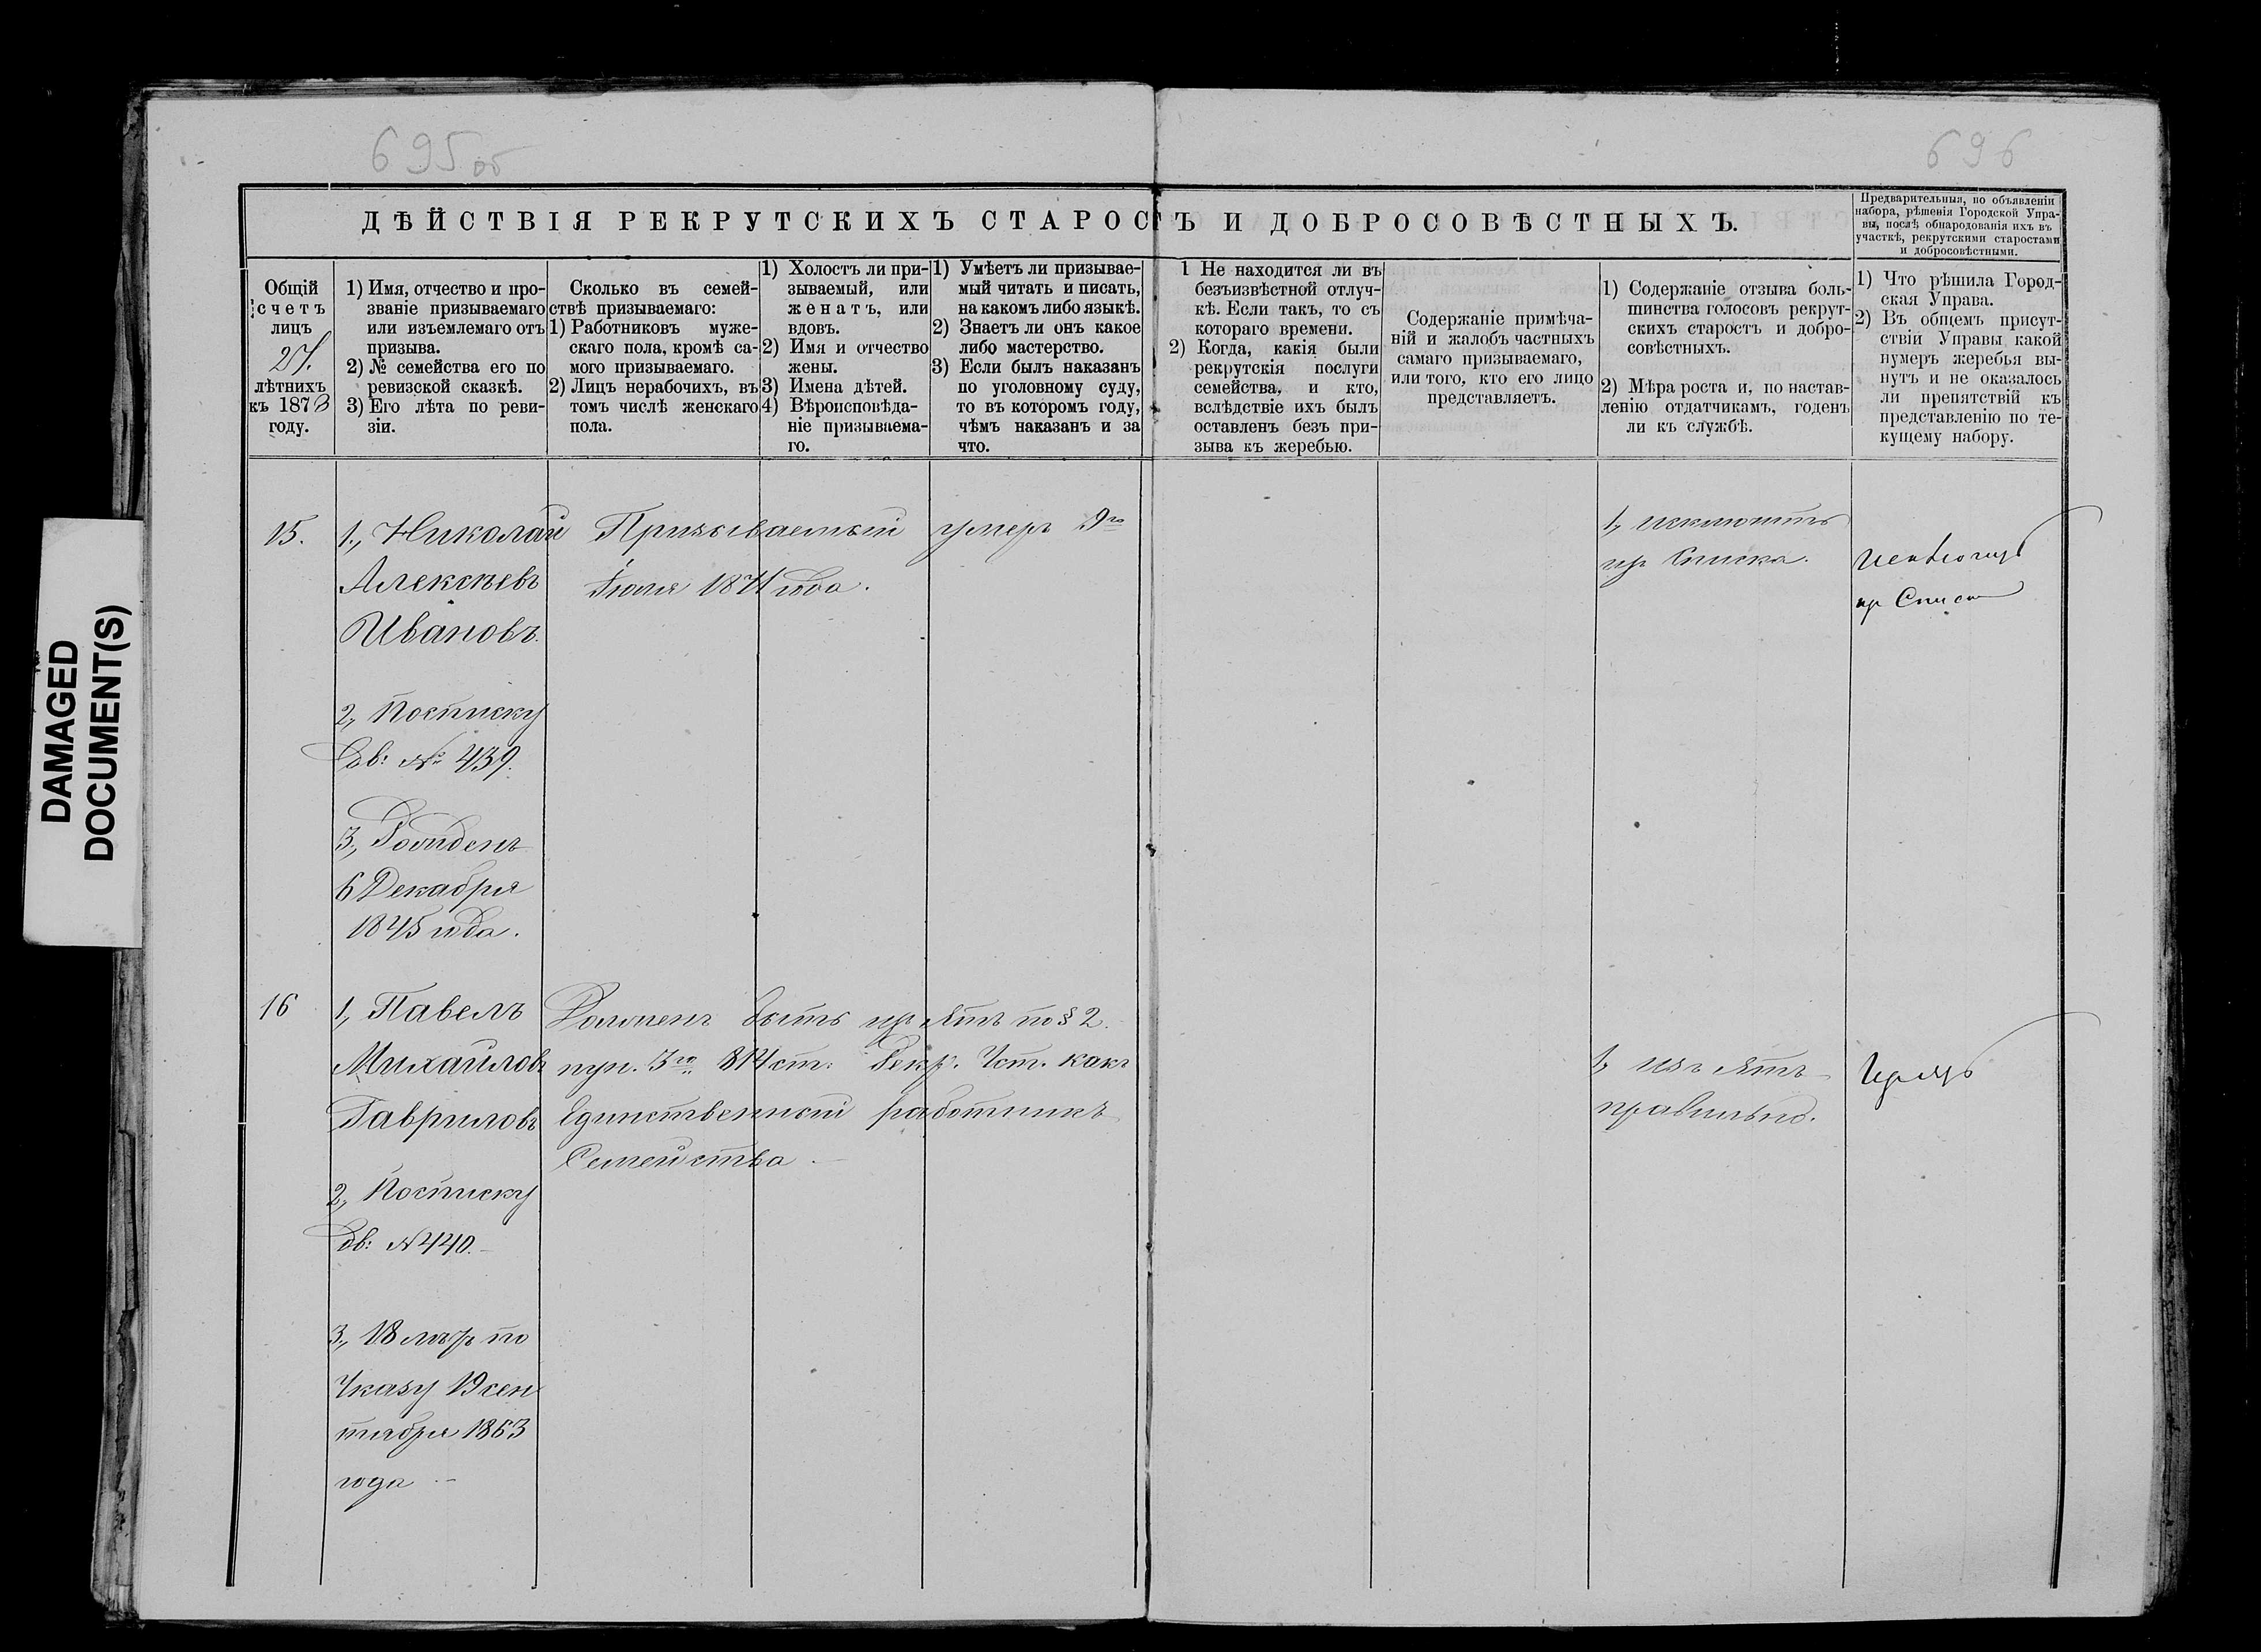 695 об
696
ДѢЙСТВІЯ РЕКРУТСКИХЪ СТАРОСТЪ И ДОБРОСОВѢСТНЫХЪ.
Предварительныя, по объявленіи
набора, рѣшенія Городской Упра-
вы, послѣ обнародованія ихъ въ
участкѣ, рекрутскими старостами
и добросовѣстными.
Общій
счетъ
лицъ
27.
лѣтнихъ
къ 1873
году.
1) Имя, отчество и про-
званіе призываемаго
или изъемлемаго отъ
призыва.
2) № семейства его по
ревизской сказкѣ.
3) Его лѣта по реви-
зіи.
Сколько въ семей-
ствѣ призываемаго:
1) Работниковъ муже-
скаго пола, кромѣ са-
мого призываемаго.
2) Лицъ нерабочихъ, въ
томъ числѣ женскаго
пола.
1) Холостъ ли при-
зываемый, или
женатъ, или
вдовъ.
2) Имя и отчество
жены.
3) Имена дѣтей.
4) Вѣроисповѣда-
ніе призываема-
го.
1) Умѣетъ ли призывае-
мый читать и писать,
на какомъ либо языкѣ.
2) Знаетъ ли онъ какое
либо мастерство.
3) Если былъ наказанъ
по уголовному суду,
то въ которомъ году,
чѣмъ наказанъ и за
что.
1 Не находится ли въ
безъизвѣстной отлуч-
кѣ. Если такъ, то съ
котораго времени.
2) Когда, какія были
рекрутскія послуги
семейства, и кто,
вслѣдствіе ихъ былъ
оставленъ безъ при-
зыва къ жеребью.
Содержаніе примѣча-
ній и жалобъ частныхъ
самаго призываемаго,
или того, кто его лицо
представляетъ.
1) Содержаніе отзыва боль-
шинства голосовъ рекрут-
скихъ старостъ и добро-
совѣстныхъ.
2) Мѣра роста и, по настав-
ленію отдатчикамъ, годенъ
ли къ службѣ.
1) Что рѣшила Город-
ская Управа.
2) Въ общемъ присут-
ствіи Управы какой
нумеръ жеребья вы-
нутъ и не оказалось
ли препятствій къ
представленію по те-
кущему набору.
15.
1., Николай
Алексѣевъ
Ивановъ.
2, Посписку
дв: № 439.
3, Рожденъ
6 Декабря
1845 года.
Призываемый умеръ 9го
Іюля 1871 года.
1, исключить
изъ Списка.
изъ Списка
16
1, Павелъ
Михайловъ
Гавриловъ
2, Посписку
дв: № 440.
3, 18 лѣтъ по
Указу 19 сен
тября 1863
года
Долженъ быть изъятъ по § 2.
пун. 3го 814 ст: Рекр. Уст. какъ
Единственный работникъ
Семейства
1, изъятъ
правильно.
DAMAGED
DOCUMENT(S)